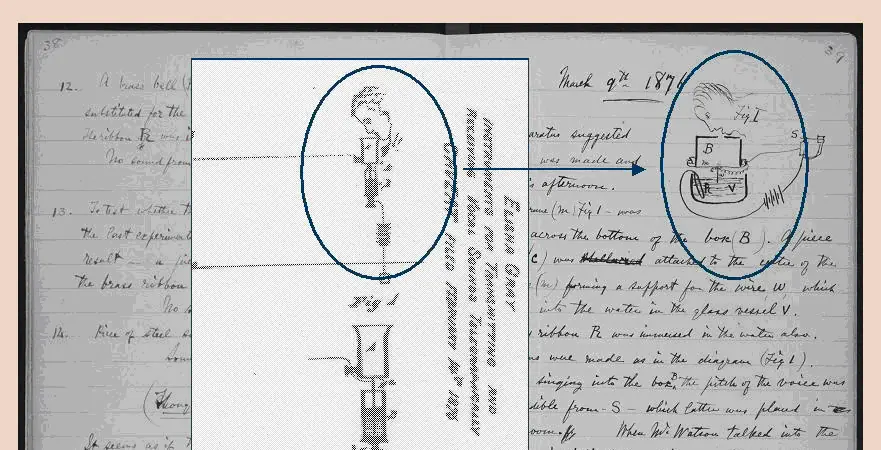 38
12. A brass bell
substituted for the
The ribbon R was
No sound from
13. To test whether
the last experiment
result — a
the brass ribbon
No
14. Piece of steel
It seems as if
Fig 1
ELISHA GRAY
INSTRUMENTS FOR TRANSMITTING AND
RECEIVING VOCAL SOUNDS TELEGRAPHICALLY
CAVEAT FILED FEBRUARY 14th 1876
39
March 9th 1876
Fig I
S
B
m
R V
suggested
was made and
afternoon.
(m) Fig 1 - was
across the bottom of the box (B). A piece
(c) was attached to the centre of the
(m) forming a support for the wire W which
into the water in the glass vessel V.
ribbon R was immersed in the water also.
were made as in the diagram (Fig 1).
singing into the box, the pitch of the voice was
from - S - which latter was placed in
room. When Mr Watson talked into the